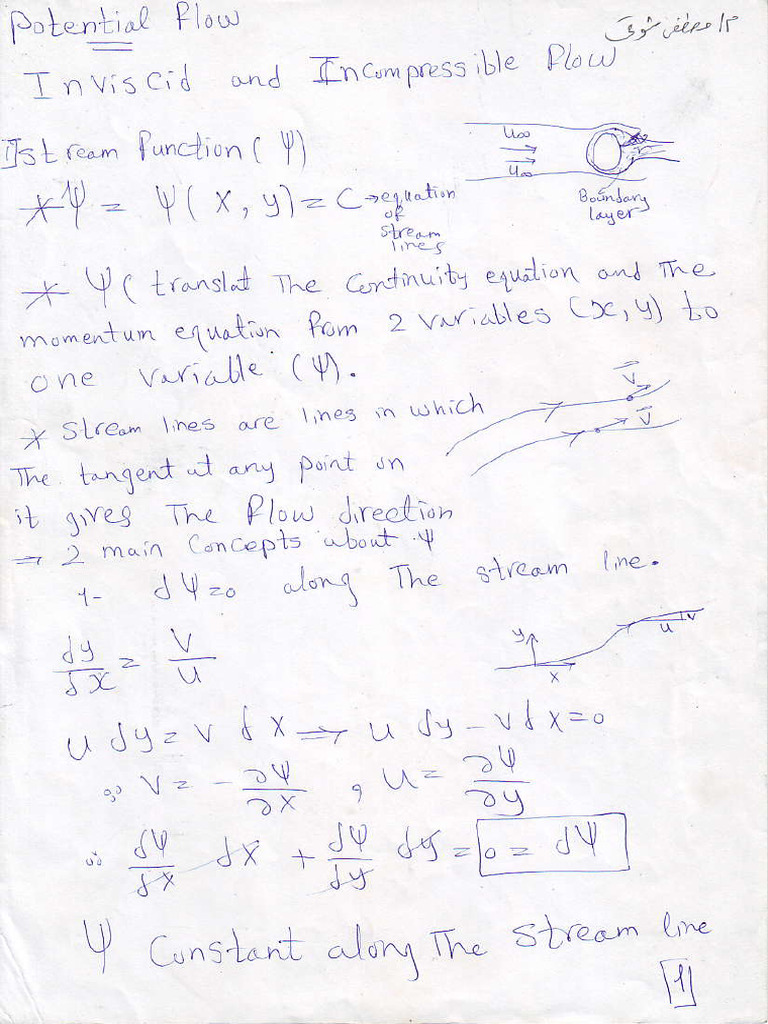 Potential Flow
م/ مصطفى شوقي
Inviscid and Incompressible Flow
1] stream Function (Ψ)
U∞
U∞
Boundary
layer
* Ψ = Ψ(x, y) = C → equation
of
stream
lines
* Ψ ( translat The Continuity equation and The
momentum equation from 2 variables (x, y) to
one variable (Ψ).
V̅
V̅
* Stream lines are lines in which
The tangent at any point on
it gives The Flow direction
⇒ 2 main Concepts about Ψ
1- dΨ=0 along The stream line.
y
x
u
v
dy/dx = V/u
u dy = v dx ⇒ u dy - v dx = 0
∵ V = -∂Ψ/∂x , u = ∂Ψ/∂y
∴ dΨ/dx dx + dΨ/dy dy = 0 = dΨ
Ψ Constant along The stream line
[1]